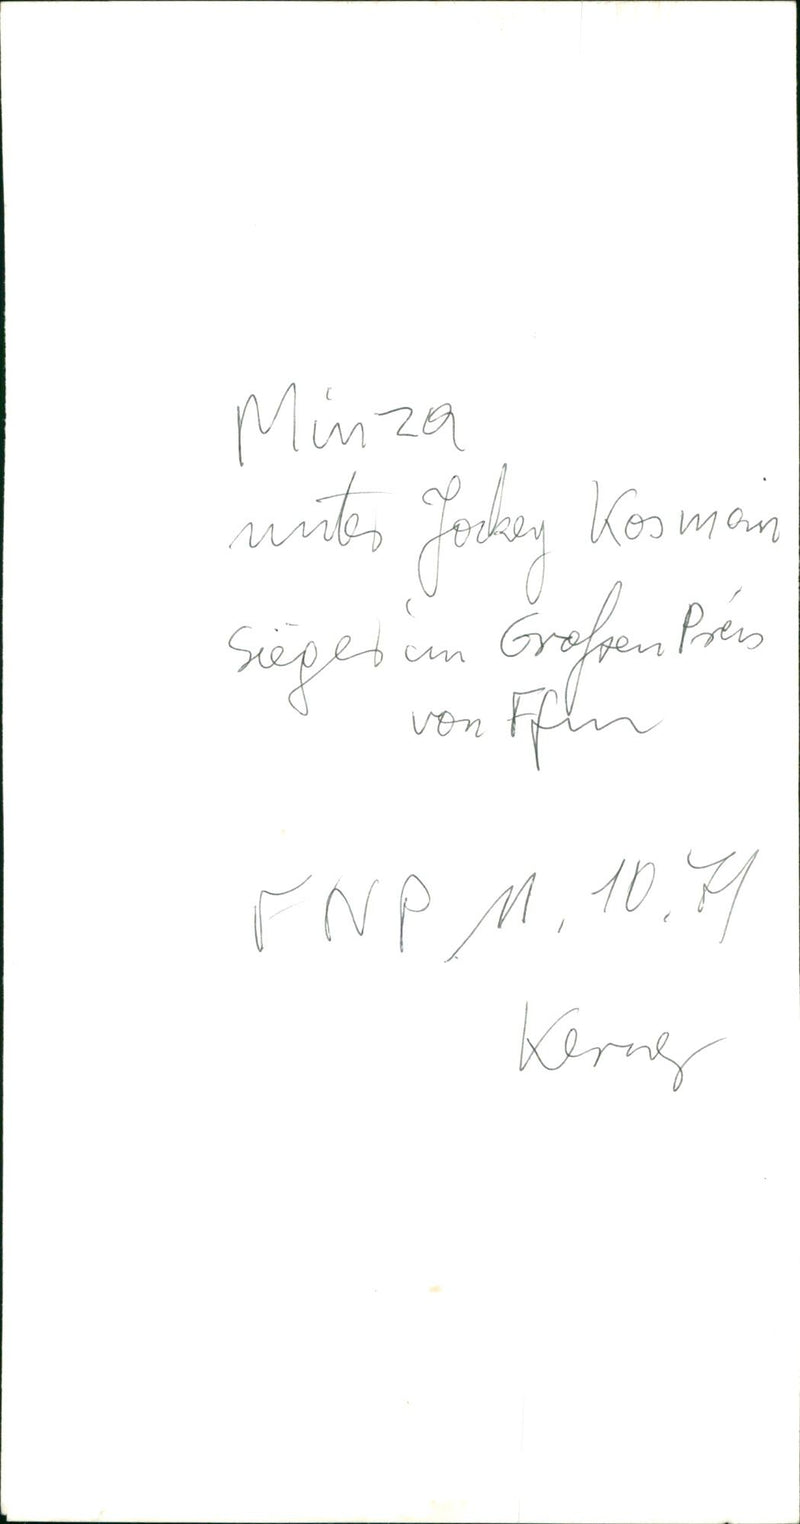 Minza
unter Jockey Kosman
Sieger im Großen Preis
von Ffm
FNP 11. 10. 71
Kerner